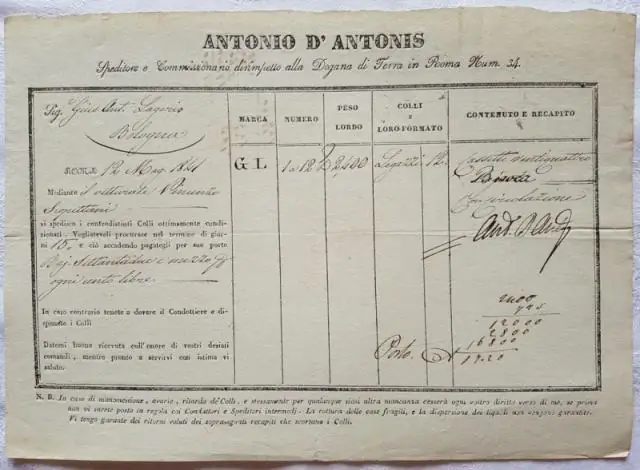 ANTONIO D' ANTONIS
Speditore e Commissionario dirimpetto alla Dogana di Terra in Roma Num. 34.
Sig. Gius Ant. Lagorio
Bologna
ROMA 12 Mag. 1841
Mediante il vetturale Vincenzo
vi spedisco i contradistinti Colli ottimamente condi-
zionati. Vogliateveli procurare nel termine di gior-
ni 15. e ciò accadendo pagategli per suo porto
Baj. Settantadue e mezzo
ogni cento libre.
In caso contrario tenete a dovere il Condottiere e di-
spensate i Colli
Datemi buona ricevuta coll'onore di vostri desiati
comandi, mentre pronto a servirvi con istima vi
saluto.
MARCA
G L
NUMERO
1 a 12
PESO
LORDO
2400
COLLI
E
LORO FORMATO
12.
Porto.
CONTENUTO E RECAPITO
Cassette
circolazione
2400
725
12000
4800
16800
17.40
N. B. In caso di manomissione, avaria, ritardo de' Colli, e stessamente per qualunque siasi altra mancanza cesserà ogni vostro diritto verso di me, se prima
non vi sarete posto in regola coi Conduttori e Speditori intermedj. - La rottura delle case fragili, e la dispersione dei liquidi non vengono garantite.
Vi tengo garante dei ritorni voluti dai soprascritti recapiti che scortano i Colli.